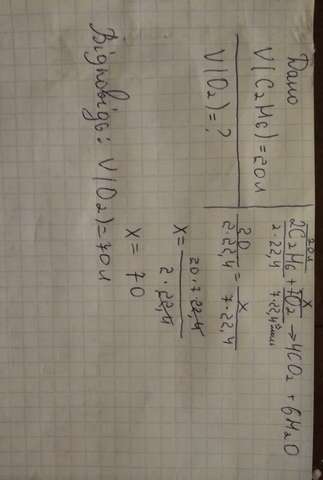 Дано
V(C₂H₆)=20л
V(O₂)=?
20л x
2C₂H₆ + 7O₂ → 4CO₂ + 6H₂O
2·22,4 7·22,4
20/2·22,4 = x/7·22,4
x = 20·7·22,4/2·22,4
x = 70
Відповідь: V(O₂)=70л